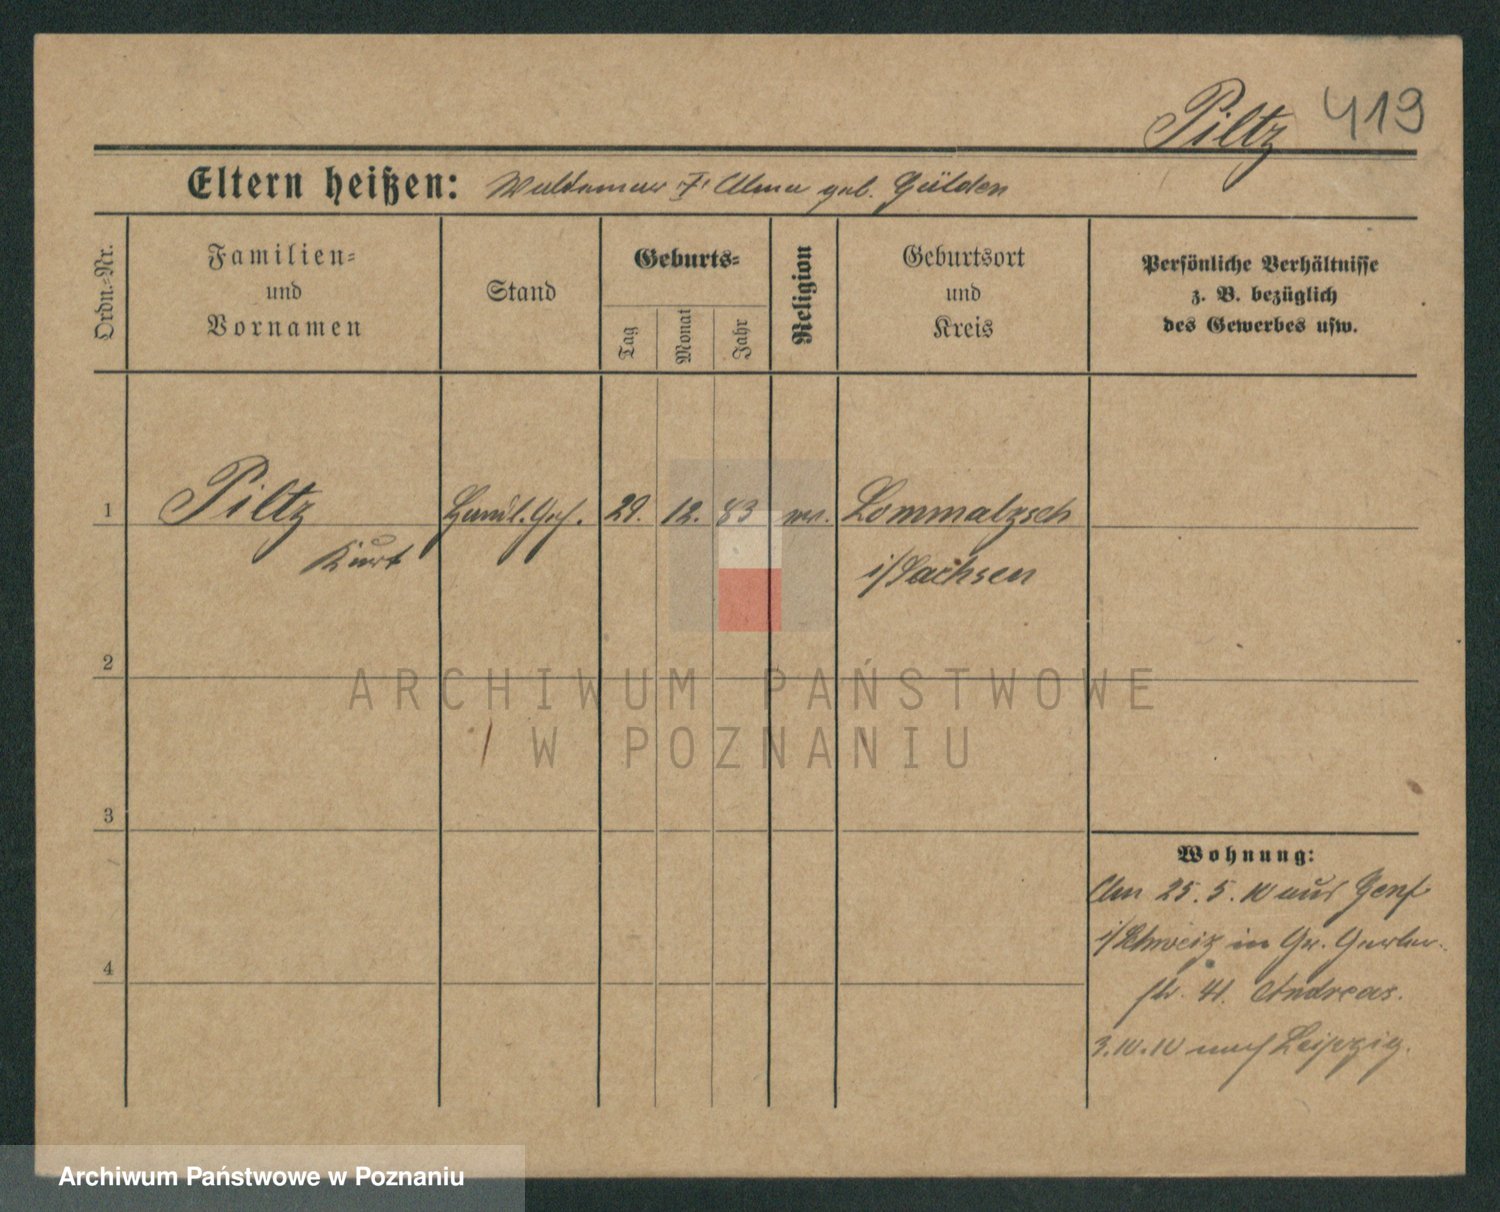 Piltz 419
Eltern heißen: Waldemar Alma geb. Gülden
Ordn.-Nr.
Familien-
und
Vornamen
Stand
Geburts-
Tag
Monat
Jahr
Religion
Geburtsort
und
Kreis
Persönliche Verhältnisse
z. B. bezüglich
des Gewerbes usw.
1 Piltz Handl. Geh. 29. 12. 83 ev. Lommatzsch
Kurt i/Sachsen
2
ARCHIWUM PAŃSTWOWE
W POZNANIU
3
Wohnung:
Am 25. 5. 10 aus Genf
i/Schweiz in Gr. Gerber-
4
str. 41. Andreas.
3.10.10 nach Leipzig.
Archiwum Państwowe w Poznaniu